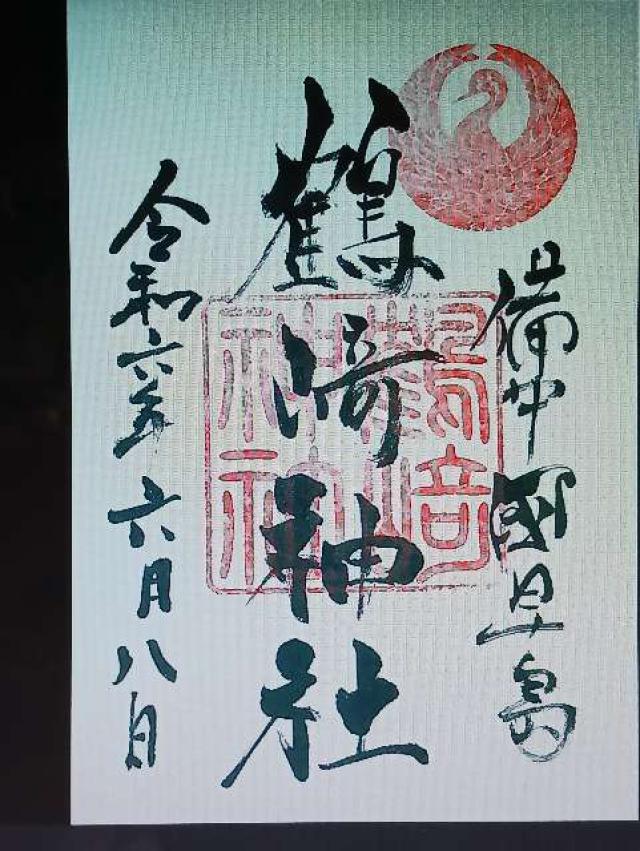 備中國早島
鶴﨑神社
鶴﨑神社
令和六年六月八日